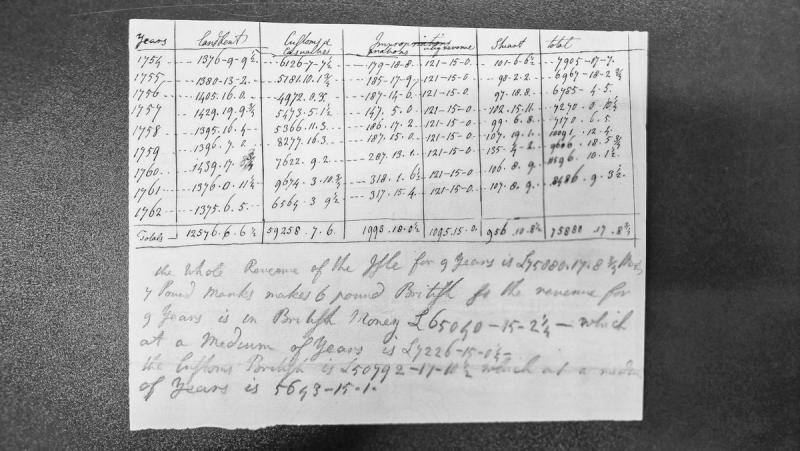 Years Constant Customs & Casualties Impropriations Abbey revenue Stuart total
1754 1376-9-9½ 6126-7-7½ 179-18-8 121-15-0 101-6-6½ 7905-17-7
1755 1380-13-2 5181.10.1¾ 185-17-9 121-15-0 98-2-2 6967-18-2¾
1756 1405.16.0 4972.0.X 187-14-0 121-15-0 97.18.8 6785-4-5
1757 1429.19.9¾ 5473.5.1½ 147.5.0 121-15-0 102.15.11 7270-0-10¼
1758 1395.10.4 5366.11.3 186.17.2 121-15-0 99.6.8 7170.6.5
1759 1396.7.2 8277.16.3 187.15.0 121-15-0 107.19.1 10091.12.4
1760 1439.17 7622.9.2 287.13.1 121-15-0 135-4-2 9606.18.5¾
1761 1376.0.11¼ 9674.3.10¾ 318.1.6½ 121-15-0 106.8.9 11596.10.1½
1762 1375.6.5 6564.3.9½ 317.15.4 121-15-0 107.8.9 8486.9.3½
Totals 12576.6.6½ 59258.7.6 1993.18.0½ 1095.15.0 956.10.8½ 75880.17.8¾
the Whole Revenue of the Isle for 9 Years is £75080.17.8¾ Manks
7 Pound Manks makes 6 pound British so the revenue for
9 Years is in British Money £65040-15-2¼ - which
at a Medium of Years is £7226-15-0¼-
the Customs British is £50792-17-10½ which at a medium
of Years is 5643-15.1.